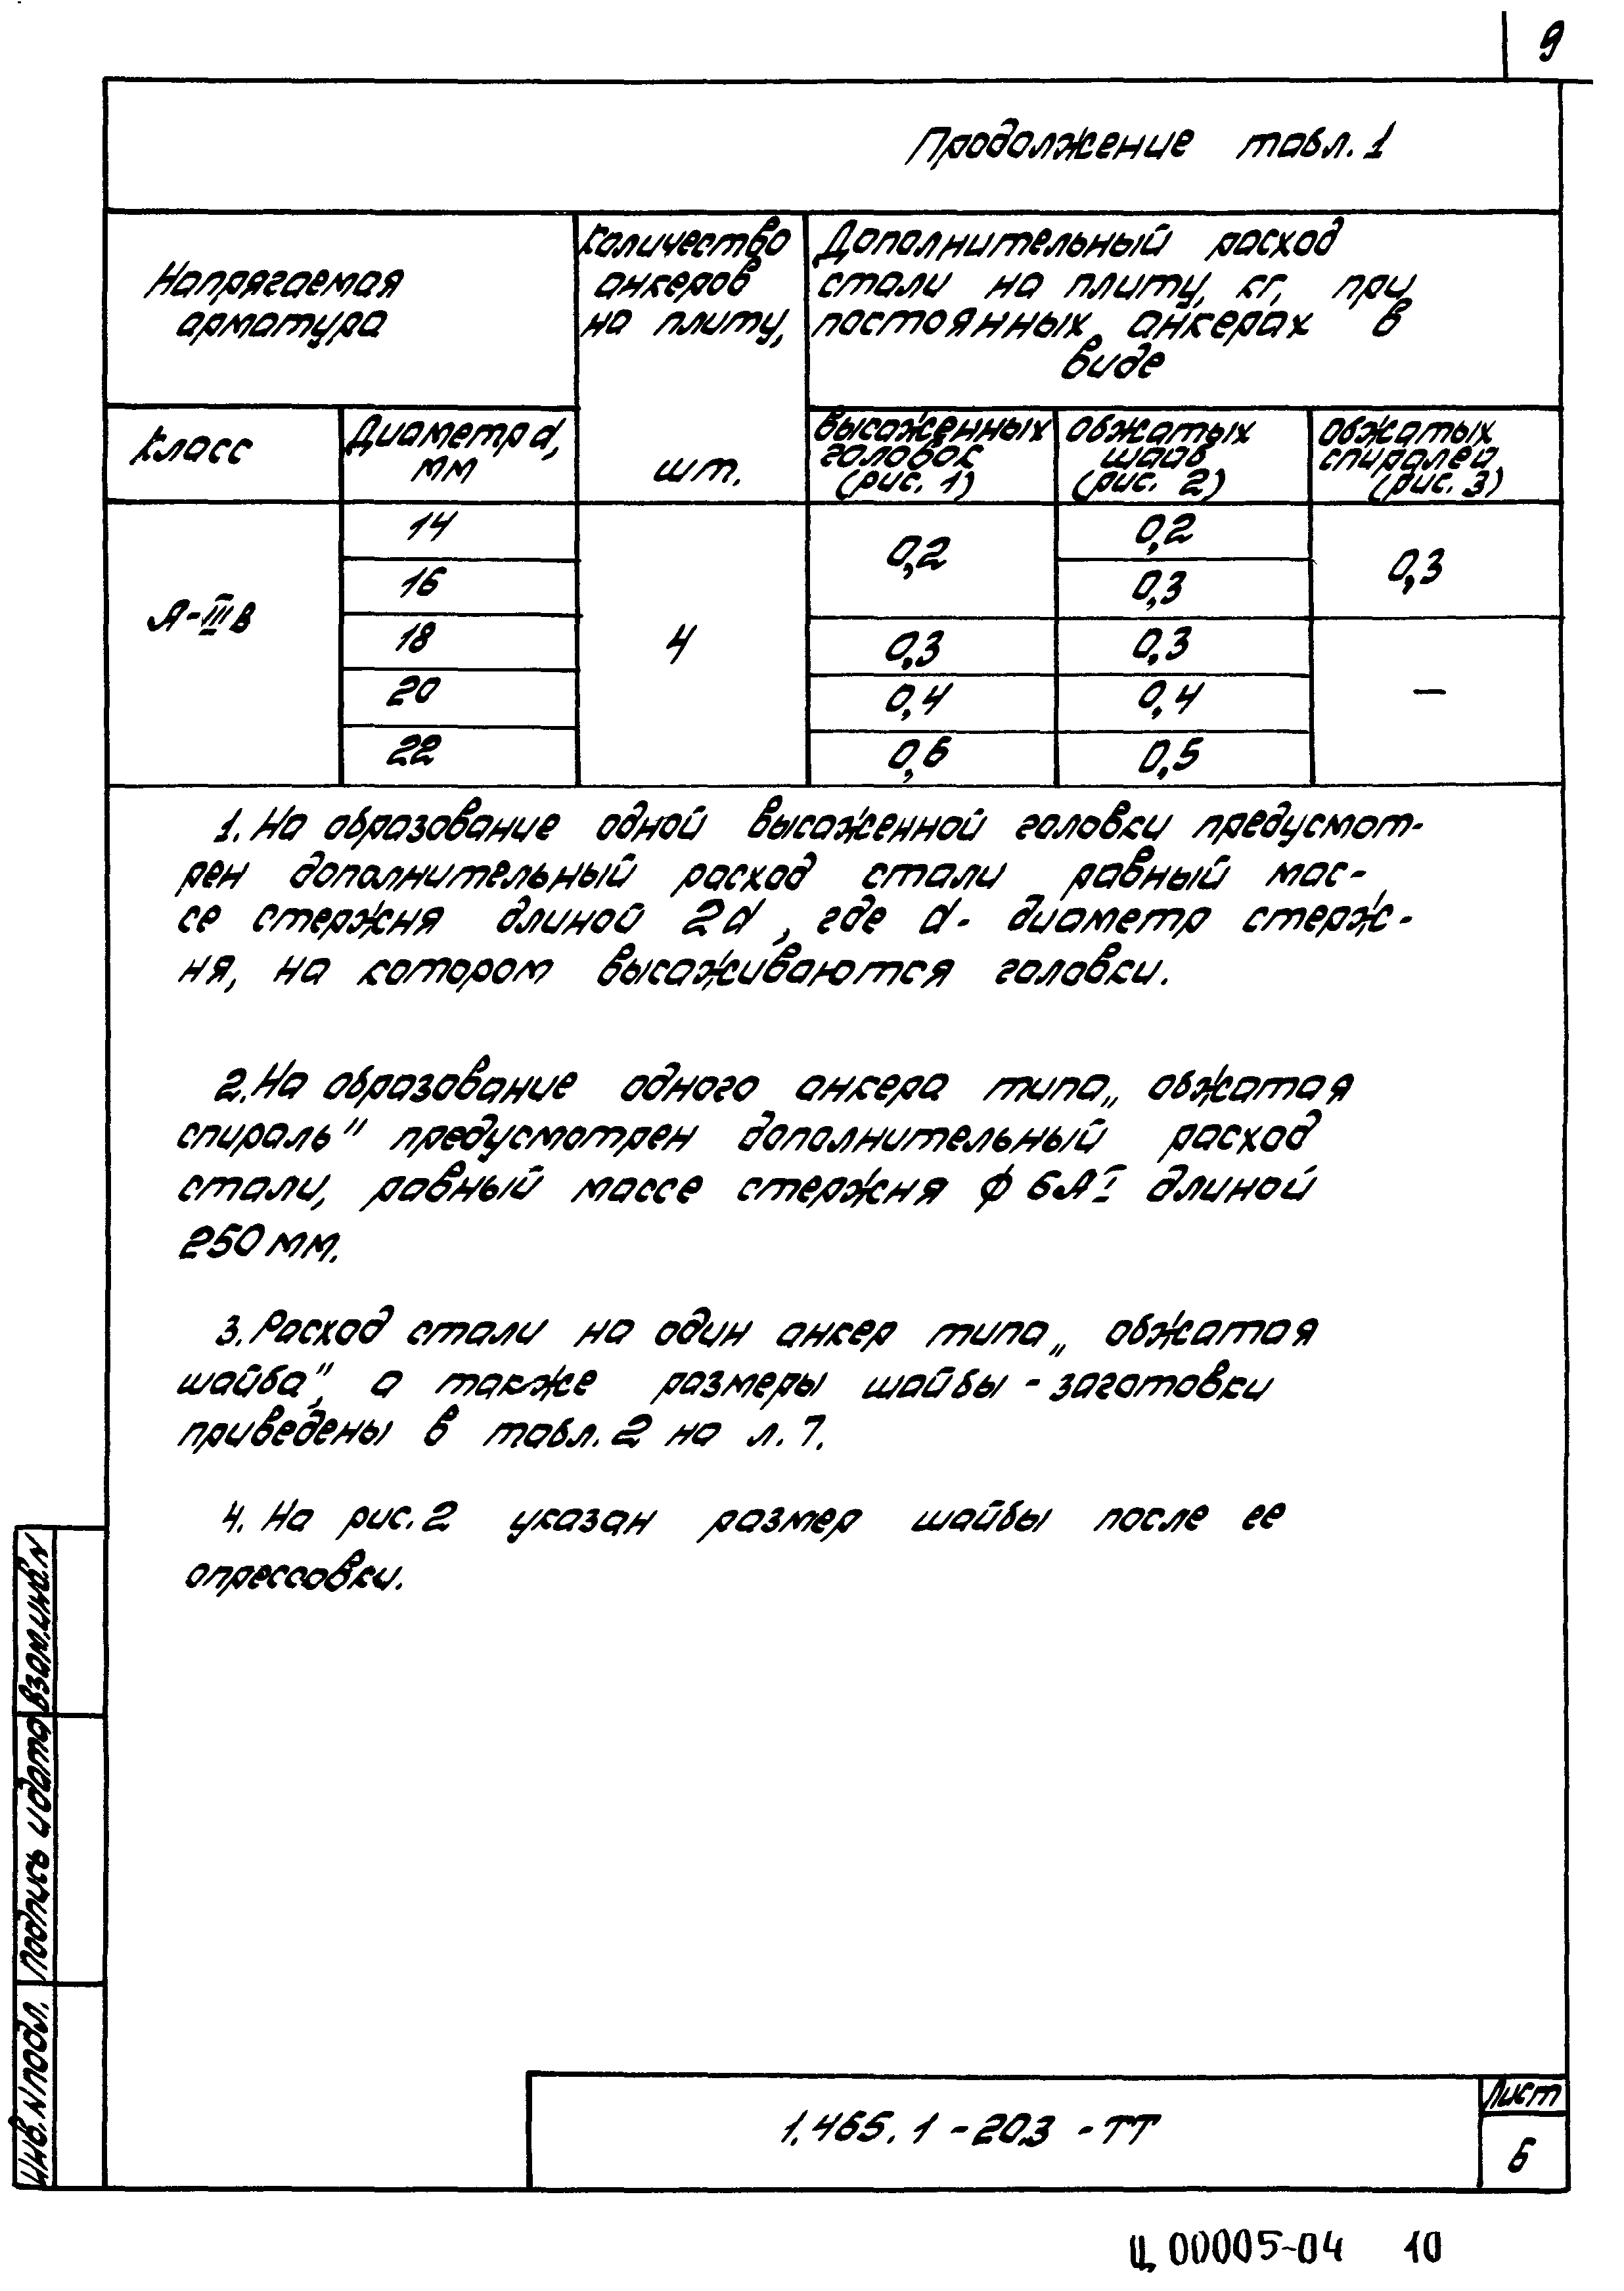 9
Продолжение табл. 1
Напрягаемая
арматура
Количество
анкеров
на плиту,
шт.
Дополнительный расход
стали на плиту, кг, при
постоянных анкерах в
виде
Класс
Диаметр d,
мм
высаженных
головок
(рис. 1)
обжатых
шайб
(рис. 2)
обжатых
спиралей
(рис. 3)
А-IIIв
14
16
18
20
22
4
0,2
0,3
0,4
0,6
0,2
0,3
0,3
0,4
0,5
0,3
—
1. На образование одной высаженной головки предусмот-
рен дополнительный расход стали равный мас-
се стержня длиной 2d, где d - диаметр стерж-
ня, на котором высаживаются головки.
2. На образование одного анкера типа „обжатая
спираль" предусмотрен дополнительный расход
стали, равный массе стержня ф 6АI длиной
250 мм.
3. Расход стали на один анкер типа „обжатая
шайба", а также размеры шайбы - заготовки
приведены в табл. 2 на л. 7.
4. На рис. 2 указан размер шайбы после ее
опрессовки.
Взам. инв. N
Подпись и дата
Инв. N подл.
1.465.1-20.3 -ТТ
Лист
6
Ц 00005-04 10